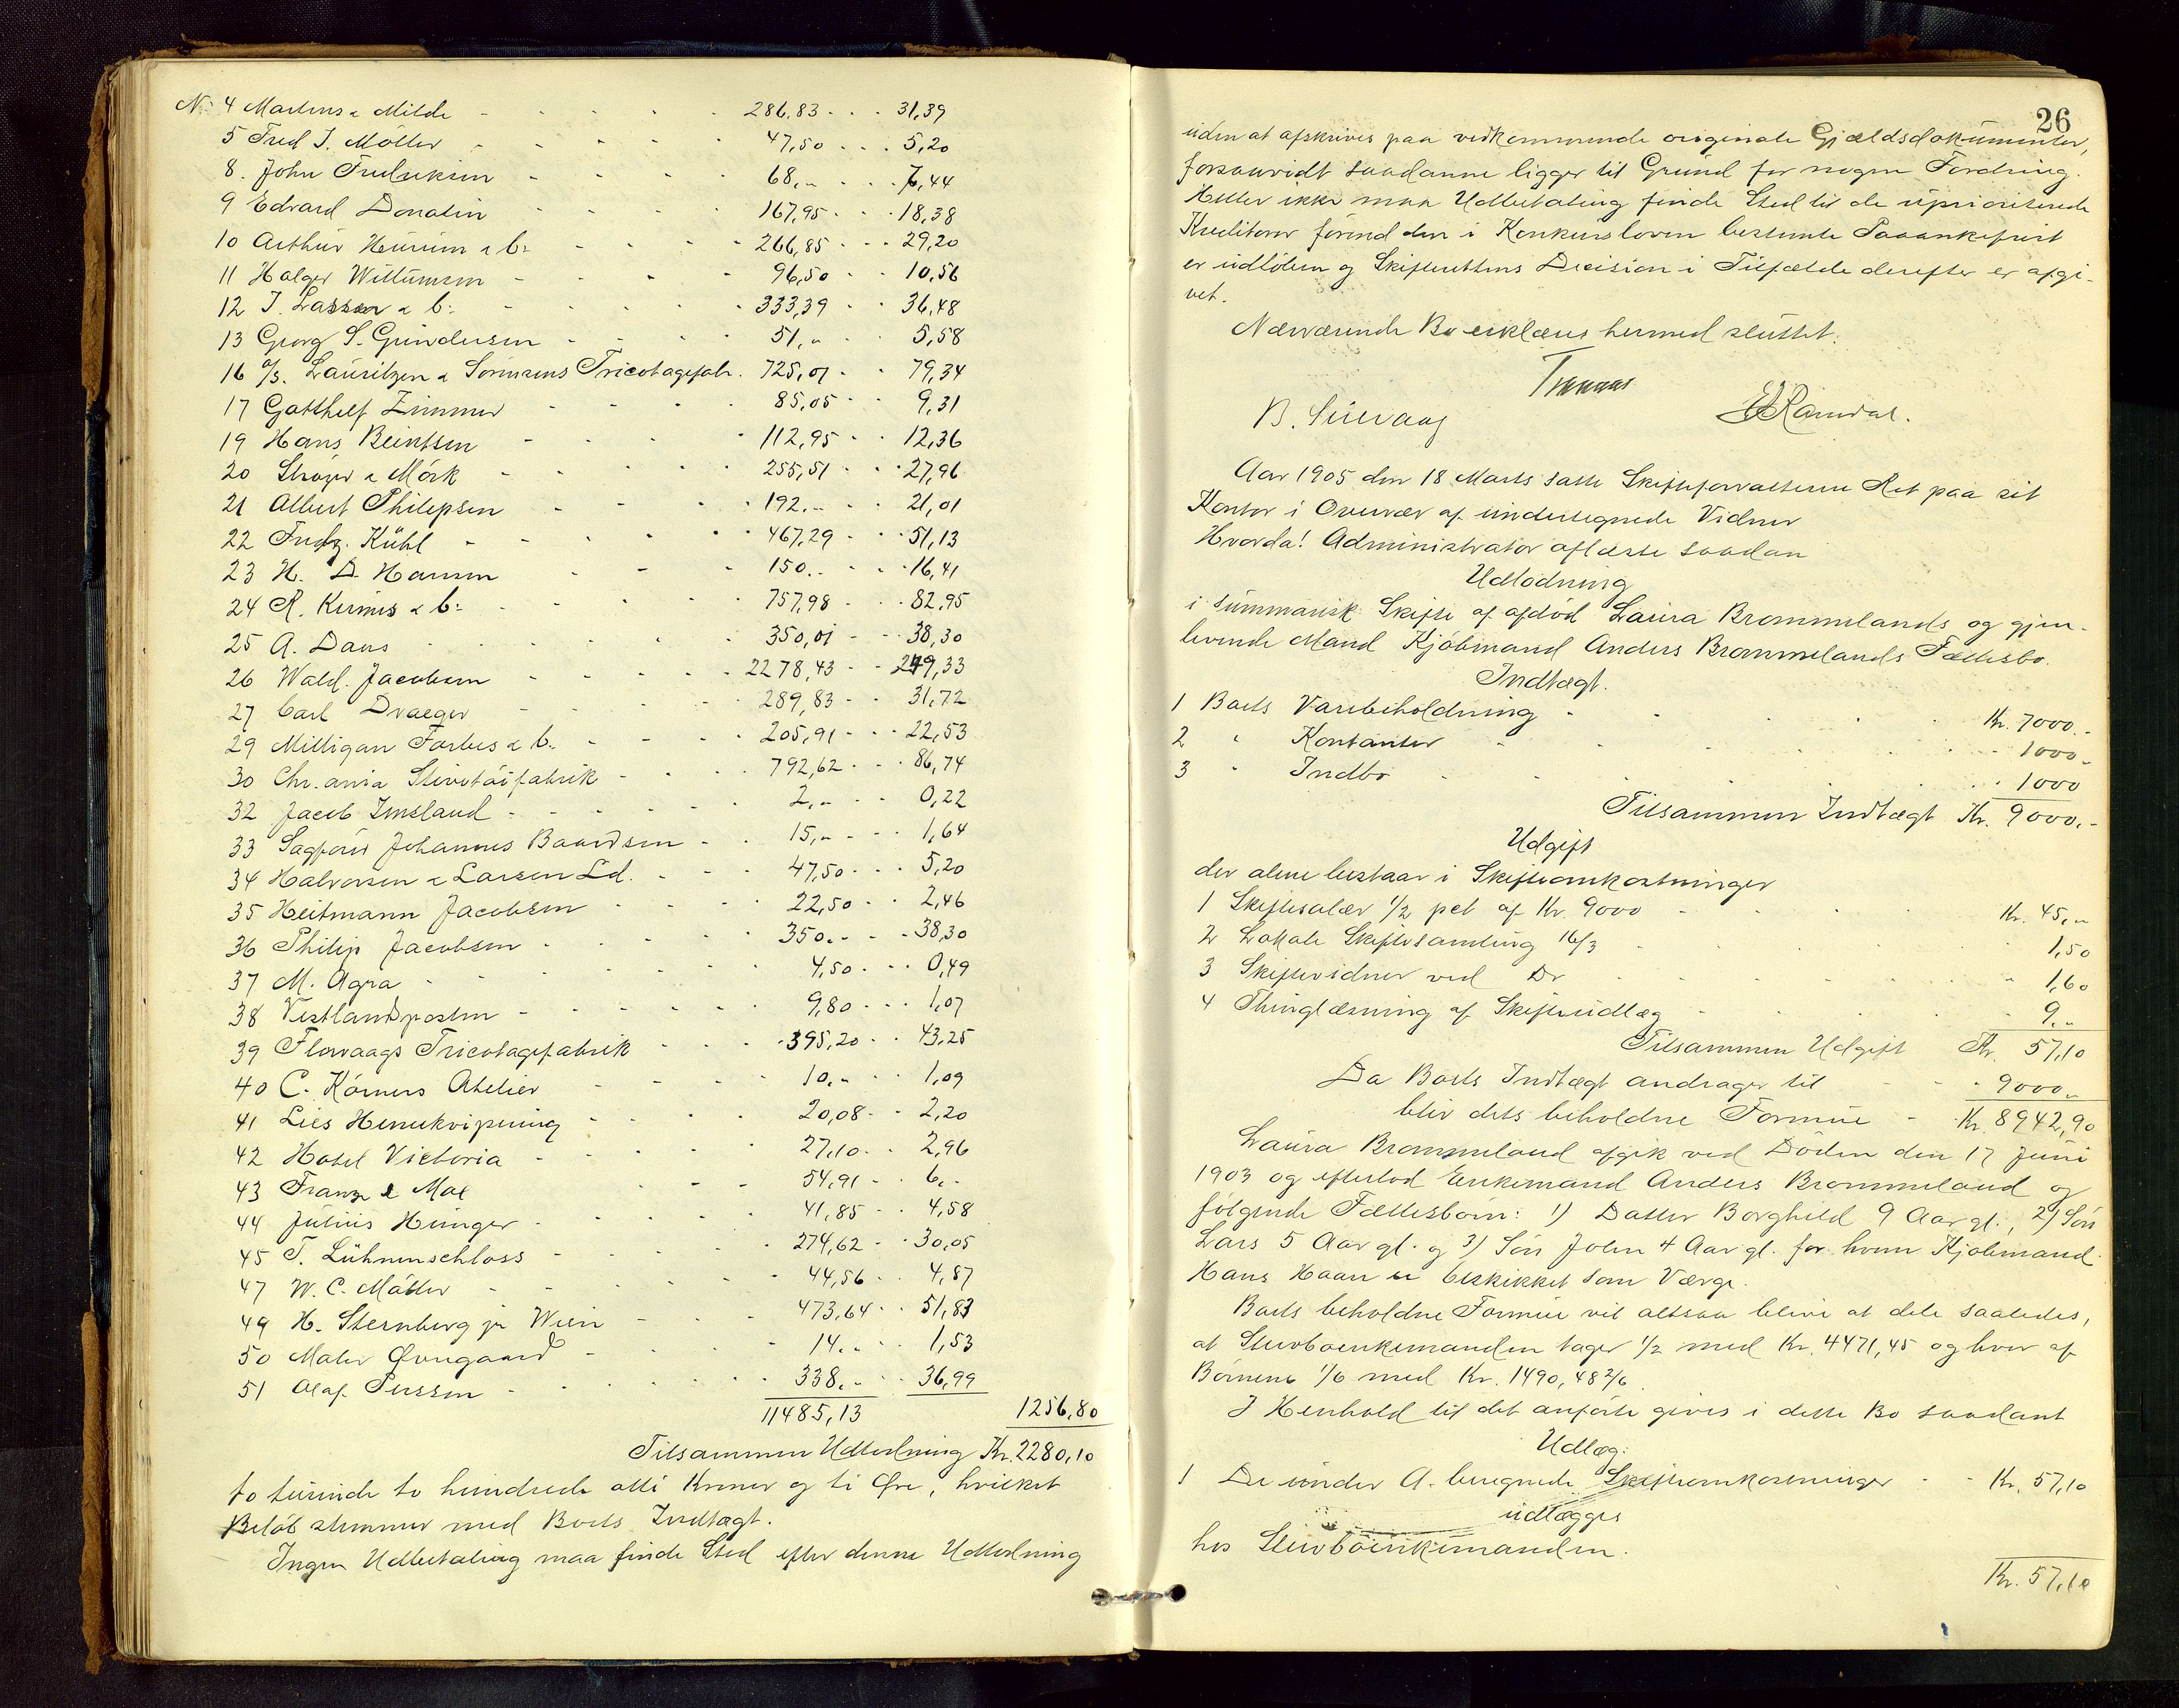 No 4 Martens & Milde - - - - 286,83 - - - 31,39
5 Fred J. Möller - - - - 47,50 - - - 5,20
8. John Fredriksen - - - - 68,- - - - 7,44
9 Edvard Donatin - - - - 167,95 - - - 18,38
10 Arthur Heurum & C: - - - 266,85 - - - 29,20
11 Holger Willumsen - - - 96,50 - - 10,56
12 J. Lassen & C: - - - 333,39 - - 36,48
13 Georg S. Gundersen - - - 51,- - - 5,58
16 A/S. Lauritzen & Sörensens Tricotagefabr. 725,01 - - 79,34
17 Gotthelf Zimmer - - - 85,05 - - 9,31
19 Hans Beintsen - - - 112,95 - - 12,36
20 Ströyer & Mörk - - - 255,51 - - 27,96
21 Albert Philipsen - - - 192.- - - 21,01
22 Kühl - - - 467,29 - - 51,13
23 H. D. Hansen - - - 150.- - - 16,41
24 R. Kernés & C: - - - 757,98 - - 82,95
25 A. Daus - - - 350,01 - - 38,30
26 Wald. Jacobsen - - - 2278,43 - - 249,33
27 Carl Draeger - - - 289,83 - - 31,72
29 Milligan Forbes & C. - - - 205,91 - - 22,53
30 Chr.ania Skivetöifabrik - - - 792,62 - - 86,74
32 Jacob Imsland - - - 2,- - - 0,22
33 Sagförer Johannes Baardsen - - 15,- - - 1,64
34 Halvorsen & Larsen Ld. - - - 47,50 - - 5,20
35 Heitmann Jacobsen - - - 22,50 - - 2,46
36 Philip Jacobsen - - - 350.- - - 38,30
37 M. Agra - - - 4,50 - - 0,49
38 Vestlandsposten - - - 9,80 - - 1,07
39 Florvaags Tricotagefabrik - - - 395,20 - - 43,25
40 C. Körners Atelier - - - 10.- - - 1,09
41 Lies Herrekvipering - - - 20,08 - - 2,20
42 Hotel Victoria - - - 27,10 - - 2,96
43 Franz & Max - - - 54,91 - - 6.-
44 Julius Hunger - - - 41,85 - - 4,58
45 T. Lühnenschloss - - - 274,62 - - 30,05
47 W. C. Möller - - - 44,56 - - 4,87
49 H. Sternberg jr Wien - - - 473,64 - - 51,83
50 Maler Övregaard - - - 14.- - - 1,53
51 Olaf Perssen - - - 338.- - - 36,99
11485,13 1256,80
Tilsammen Udlodning Kr. 2280,10
to tusinde to hundrede otti Kroner og ti Øre, hvilket
Belöb stemmer med Boets Indtægt.
Ingen Udbetaling maa finde Sted efter denne Udlodning
26
uden at afskrives paa vedkommende originale Gjældsdokumenter,
forsaavidt saadanne ligger til Grund for nogen Fordring.
Heller ikke maa Udbetaling finde Sted til de uprioriterede
Kreditorer förend den i Konkursloven bestemte Paaankefrist
er udlöben og Skifterettens Decision i Tilfælde derefter er afgi-
vet.
Nærværende Bo erklæres hermed sluttet.
B. Suevaag
Aar 1905 den 18 Marts satte Skifteforvalteren Ret paa sit
Kontor i Overvær af undertegnede Vidner
Hvorda! Administrator aflæste saadan
Udlodning
i summarisk Skifte af afdöd Laura Brommelands og gjen-
levende Mand Kjöbmand Anders Brommelands Fællesbo.
Indtægt.
1 Boets Varebeholdning - - - Kr. 7000.-
2 " Kontanter - - - 1000.-
3 " Indbo - - - 1000
Tilsammen Indtægt Kr. 9000.-
Udgift
der alene bestaar i Skifteomkostninger
1 Skiftesalær 1/2 pct af Kr. 9000 - - - Kr. 45,-
2 Lokale Skiftesamling 16/3 - - - 1,50
3 Skiftevidner ved Do - - - 1,60
4 Thinglæsning af Skifteudlæg - - - 9.-
Tilsammen Udgift Kr. 57,10
Da Boets Indtægt andrager til - - - 9000.-
blir dets beholdne Formue - Kr. 8942,90
Laura Brommeland afgik ved Döden den 17 Juni
1903 og efterlod Enkemand Anders Brommeland og
fölgende Fællesbörn: 1) Datter Borghild 9 Aar gl., 2) Sön
Lars 5 Aar gl. og 3) Sön John 4 Aar gl. for hvem Kjöbmand
Hans Haan er beskikket som Værge.
Boets beholdne Formue vil altsaa blive at dele saaledes,
at Stervboenkemanden tager 1/2 med Kr. 4471,45 og hver af
Börnene 1/6 med Kr. 1490,48 2/6.
I Henhold til det anförte gives i dette Bo saadant
Udlæg:
1 De under A. beregnede Skifteomkostninger - - Kr. 57,10
udlægges
hos Stervboenkemanden.
Kr. 57,10